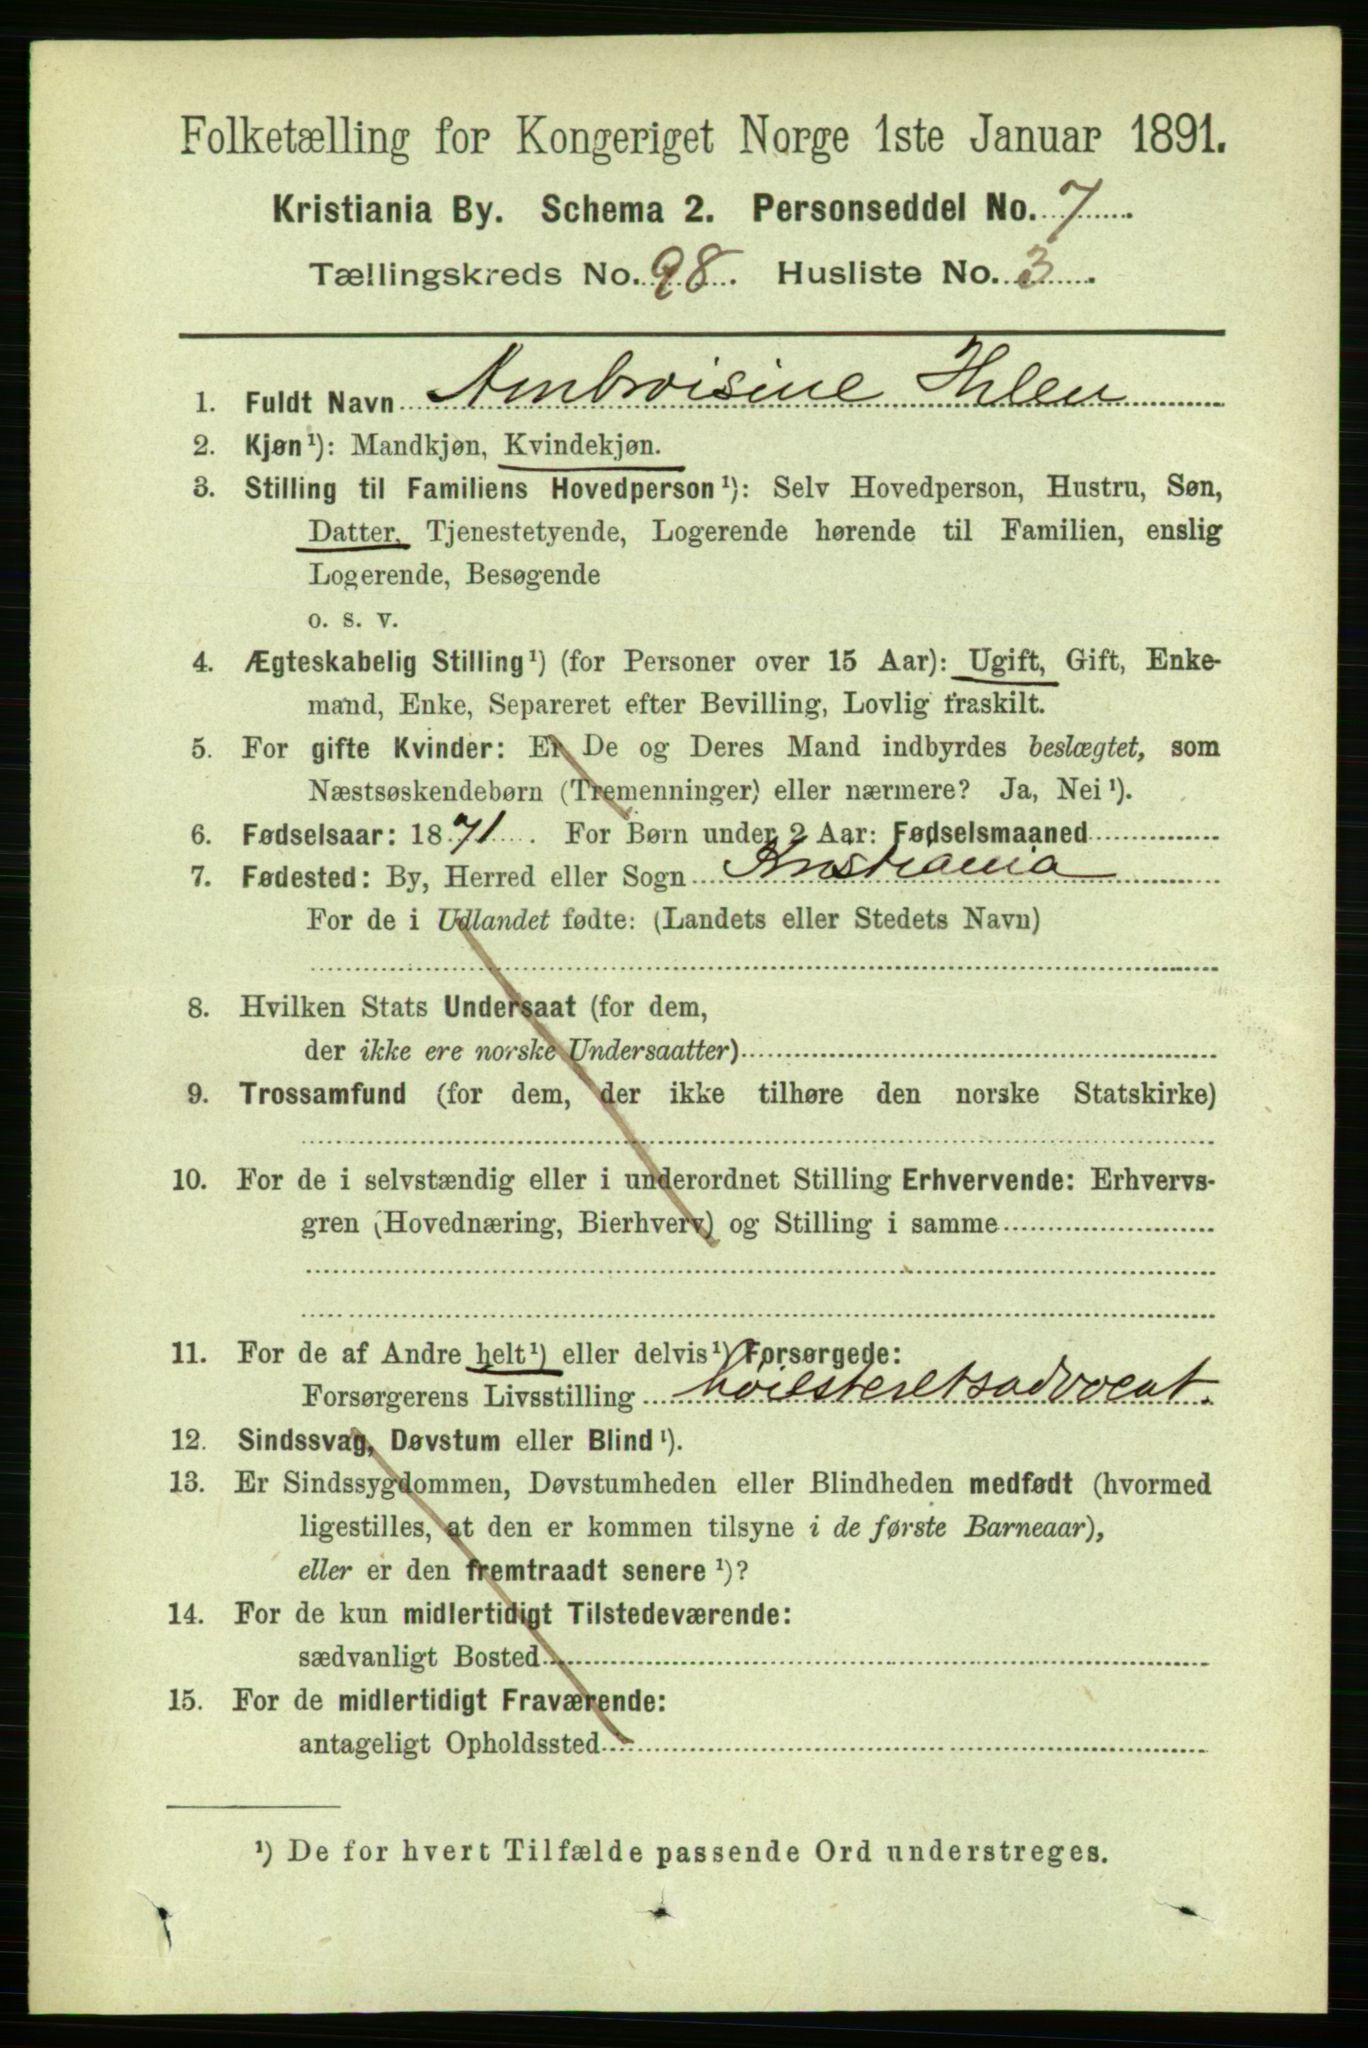 Folketælling for Kongeriget Norge 1ste Januar 1891.
Kristiania By. Schema 2. Personseddel No. 7.
Tællingskreds No. 98. Husliste No. 3.
1. Fuldt Navn Ambroisine Ihlen
2. Kjøn¹): Mandkjøn, Kvindekjøn.
3. Stilling til Familiens Hovedperson¹): Selv Hovedperson, Hustru, Søn,
Datter, Tjenestetyende, Logerende hørende til Familien, enslig
Logerende, Besøgende
o. s. v.
4. Ægteskabelig Stilling¹) (for Personer over 15 Aar): Ugift, Gift, Enke-
mand, Enke, Separeret efter Bevilling, Lovlig fraskilt.
5. For gifte Kvinder: Er De og Deres Mand indbyrdes beslægtet, som
Næstsøskendebørn (Tremenninger) eller nærmere? Ja, Nei¹).
6. Fødselsaar: 1871. For Børn under 2 Aar: Fødselsmaaned
7. Fødested: By, Herred eller Sogn Kristiania
For de i Udlandet fødte: (Landets eller Stedets Navn)
8. Hvilken Stats Undersaat (for dem,
der ikke ere norske Undersaatter)
9. Trossamfund (for dem, der ikke tilhøre den norske Statskirke)
10. For de i selvstændig eller i underordnet Stilling Erhvervende: Erhvervs-
gren (Hovednæring, Bierhverv) og Stilling i samme
11. For de af Andre helt¹) eller delvis¹) Forsørgede:
Forsørgerens Livsstilling höiesteretsadvocat.
12. Sindssvag, Døvstum eller Blind¹).
13. Er Sindssygdommen, Døvstumheden eller Blindheden medfødt (hvormed
ligestilles, at den er kommen tilsyne i de første Barneaar),
eller er den fremtraadt senere¹)?
14. For de kun midlertidigt Tilstedeværende:
sædvanligt Bosted
15. For de midlertidigt Fraværende:
antageligt Opholdssted
¹) De for hvert Tilfælde passende Ord understreges.